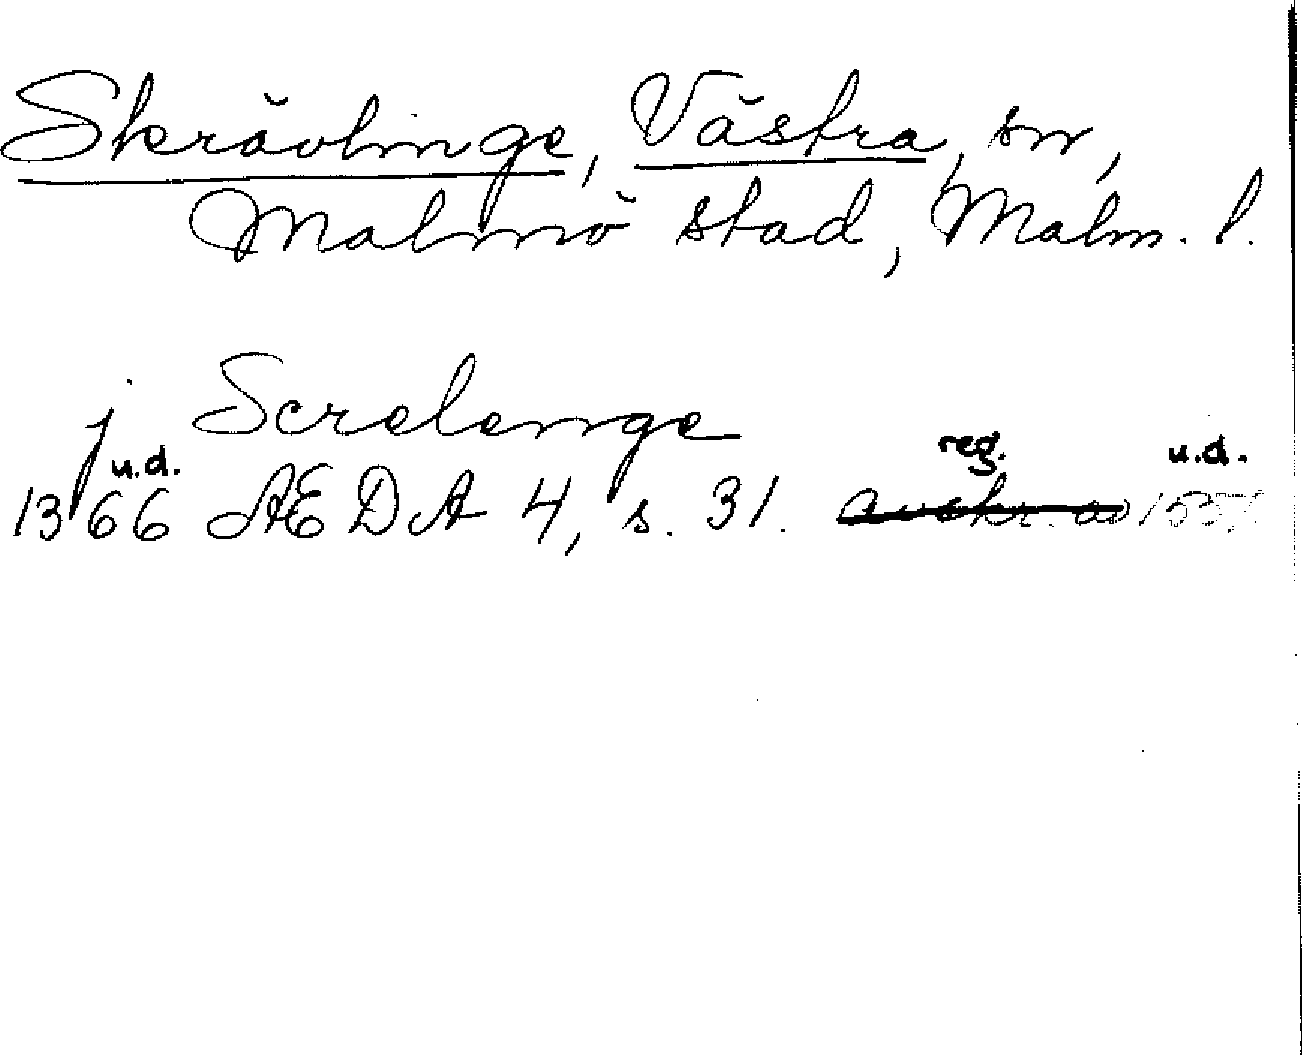 Skrävlinge, Västra, sn,
Malmö stad, Malm. l.
j Screlenge
u.d. reg. u.d.
1366 ÆDA 4, s. 31. avskr. av